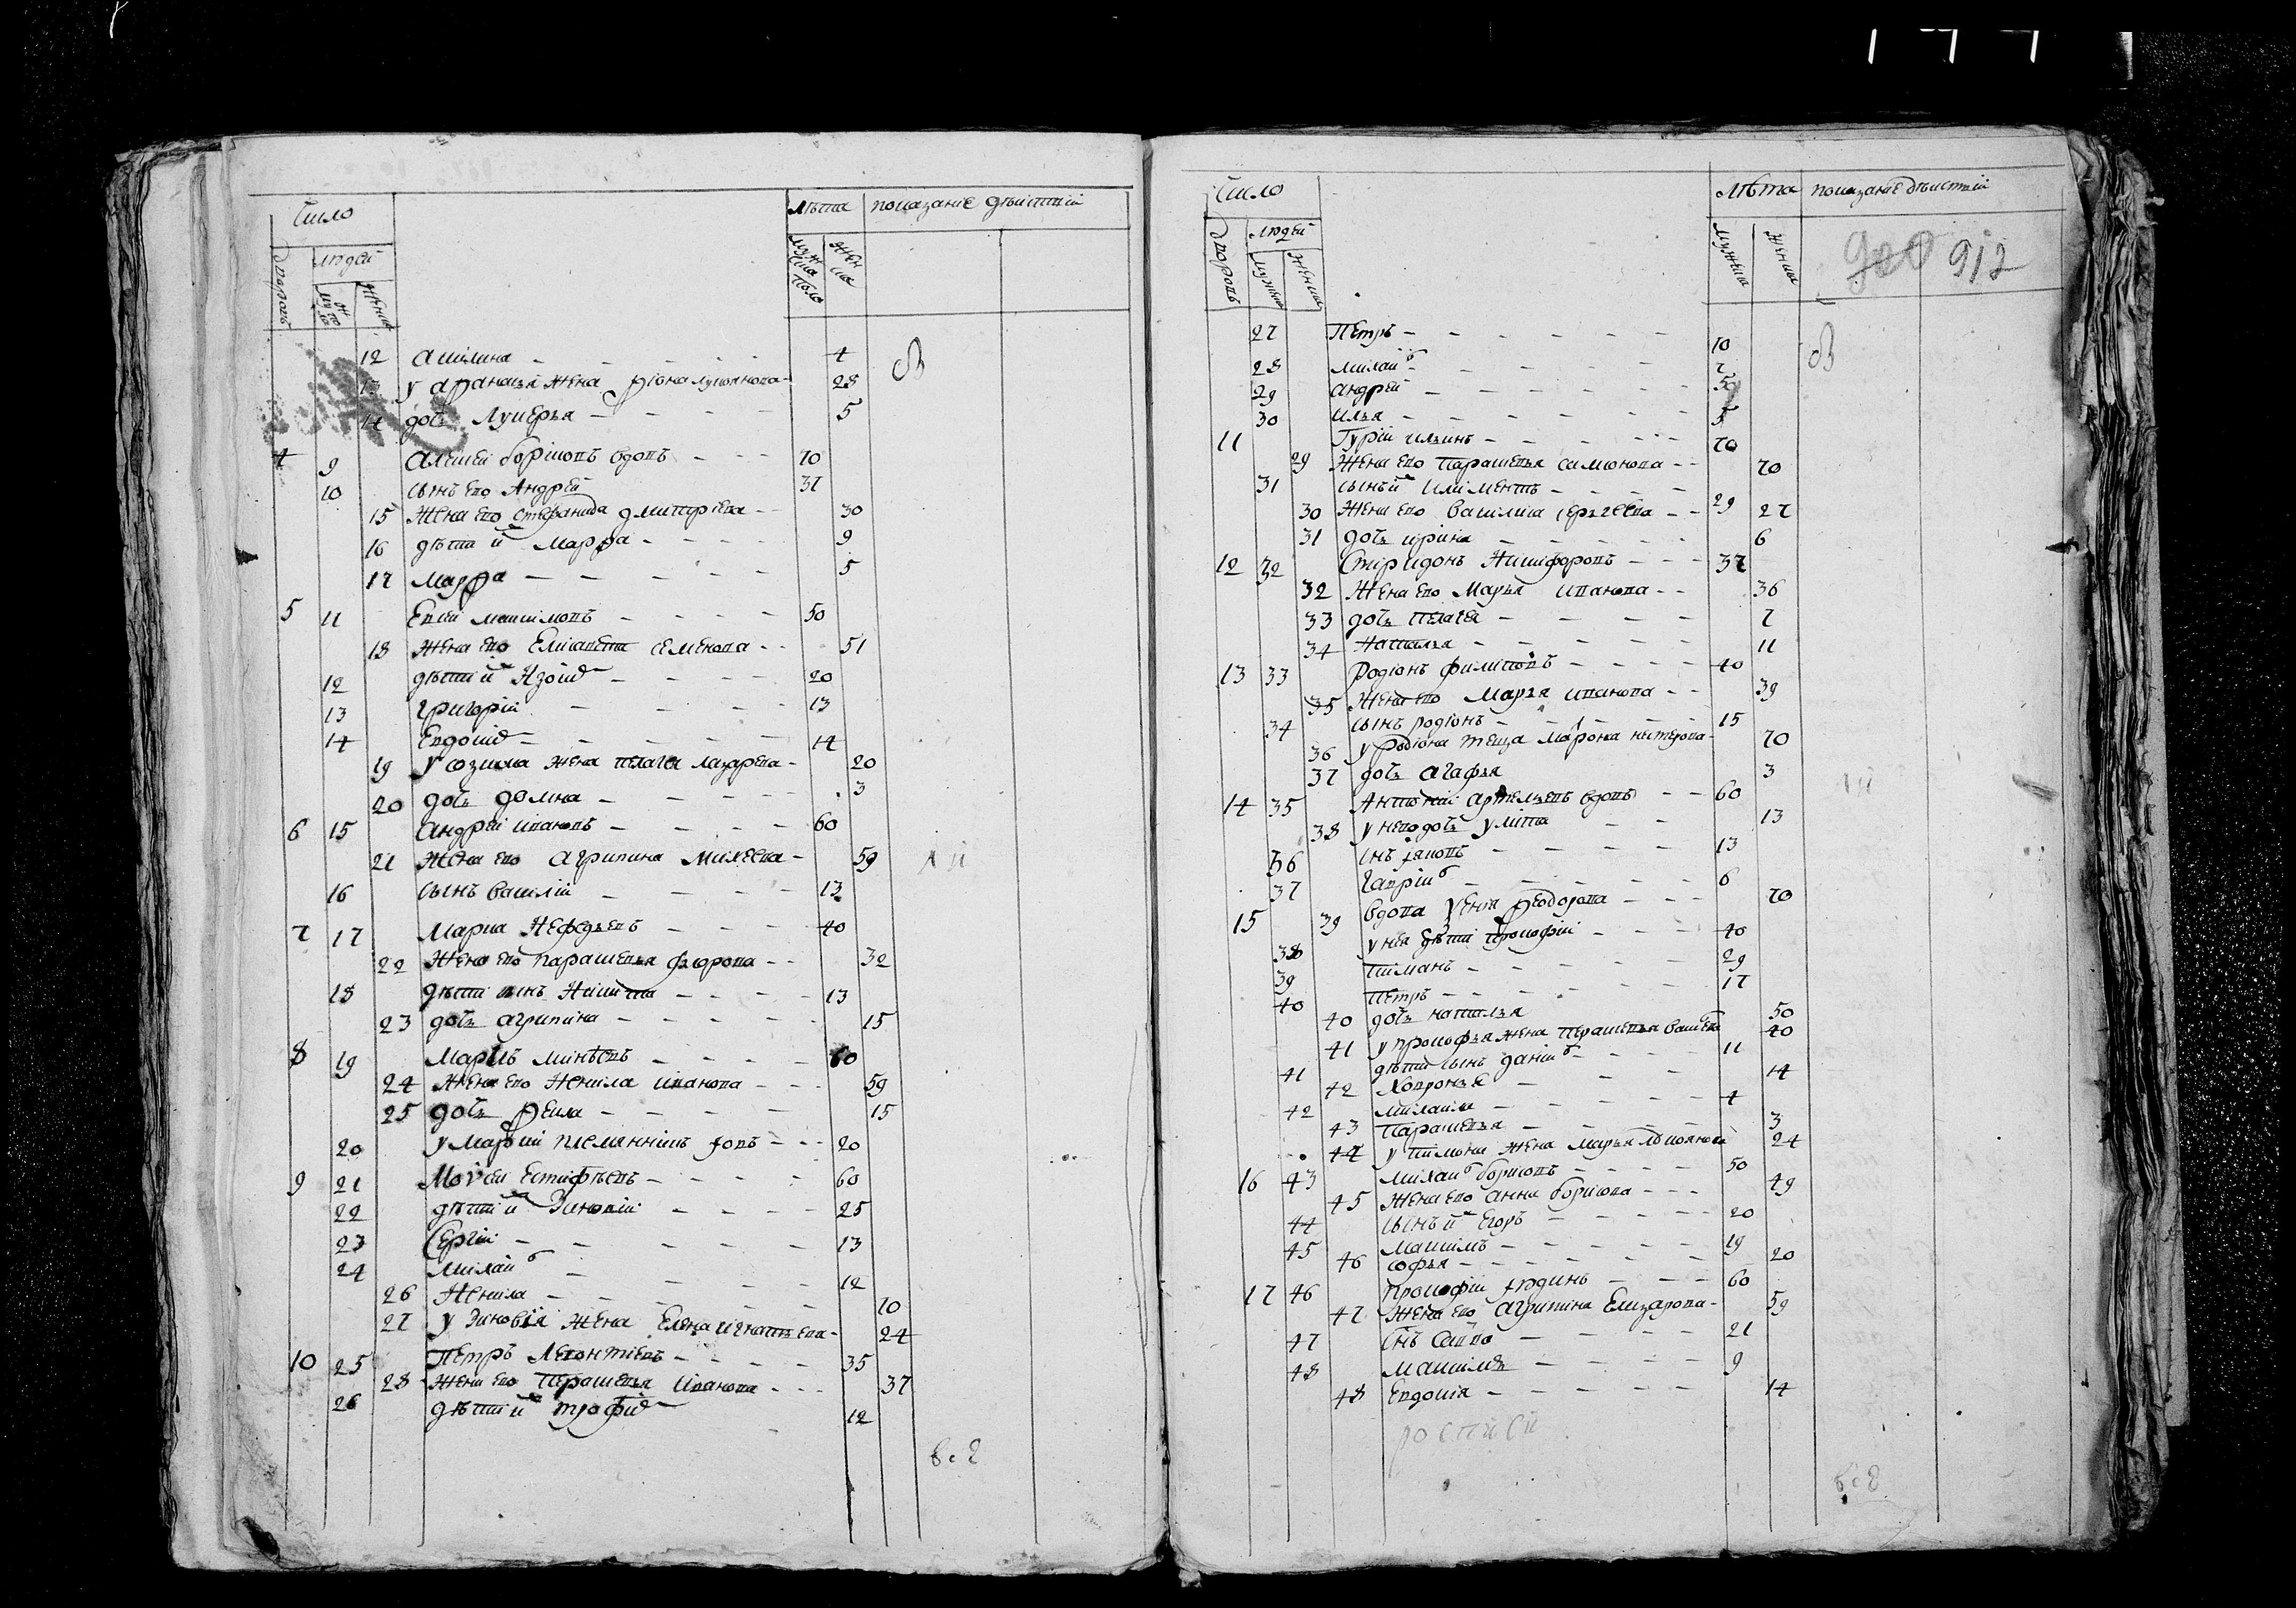 Число
лѣта показание дѣиствий
дворовъ
людей
мужеска
женска
мужска пола
женска
12 Акилина - 4
13 у Афанасья жена Фіона лукіянова - 28
14 дочь Лукерья - 5
4 9 Алексеи борисовъ вдовъ - 70
10 сынъ его Андрей 37
15 Жена его Стефанида дмитріева - 30
16 дѣти ихъ Марфа - 9
17 Марфа - 5
5 11 Евсей максимовъ - 50
18 жена его Елисавета семенова - 51
12 дѣти ихъ Изоимъ - 20
13 григорій - 13
14 Евдокимъ - 14
19 у созима жена пелагея лазарева - 20
20 дочь домна - 3
6 15 Андрей ивановъ - 60
21 Жена его агрипина михеева - 59
16 сынъ василій - 13
7 17 Марка Нефедьевъ - 40
22 Жена его парашевья флорова - 32
18 дѣти сынъ Никита - 13
23 дочь агрипина - 15
8 19 Маркъ минѣевъ - 60
24 Жена его Ненила иванова - 59
25 дочь фекла - 15
20 у Марки племянникъ іовъ - 20
9 21 Моѵсеи Естифѣевъ - 60
22 дѣти ихъ Зиновій - 25
23 Сергій - 13
24 михаилъ - 12
26 Ненила - 10
27 у Зиновія жена Елена игнатьева - 24
10 25 Петръ Леонтіевъ - 35
28 жена его парашевья иванова - 37
26 дѣти ихъ трофимъ 12
все
Число
лѣта показание дѣиствий
дворовъ
людей
мужеска
женска
мужеска
женска
900 912
27 Петръ - 10
28 михаилъ - 7
29 андрей - 5
30 илья - 5
11 Гурій ильинъ - 70
29 Жена его парашевья симонова - 70
31 сынъ ихъ климентъ - 29
30 Жена его василиса сергѣева - 27
31 дочь ирина - 6
12 32 Спиридонъ Никифоровъ - 37
32 Жена его Марья иванова - 36
33 дочь пелагея - 7
34 Наталья - 11
13 33 Родіонъ филиповъ - 40
35 Жена его Марья иванова - 39
34 сынъ родіонъ - 15
36 у Родіона теща Мафона нестерова - 70
37 дочь агафья 3
14 35 Антоній артемьевъ вдовъ - 60
38 у него дочь улита - 13
36 снъ іаковъ - 13
37 гаврилъ - 6
15 39 вдова Ксенія феодорова - 70
38 у нея дѣти прокофій - 40
39 пиманъ - 29
40 петръ - 17
40 дочь наталья 50
41 у прокофья жена парашевья васильева 40
41 дѣти сынъ данилъ - 11
42 Ховронья - 14
42 михаила - 4
43 парашевья - 3
44 у пимона жена марья лукоянова 24
16 43 михаилъ борисовъ - 50
45 Жена его анна борисова - 49
44 сынъ ихъ Егоръ - 20
45 максимъ - 19
46 софья - 20
17 46 прокофій юдинъ - 60
47 Жена его агрипина Елизарова - 59
47 снъ савва - 21
48 максимъ - 9
48 Евдокія - 14
росписи
все